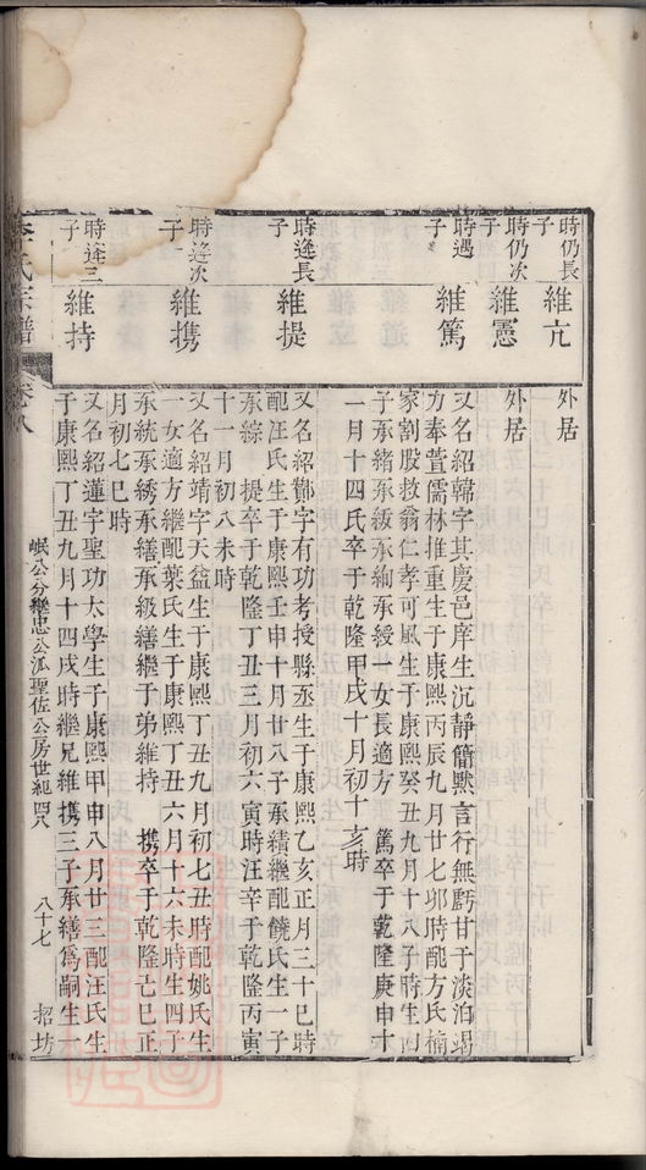 時仍長子
維亢
外居
時仍次子
維憲
外居
時遇子
維篤
又名紹韓字其慶邑庠生沉靜簡默言行無虧甘于淡泊竭
力奉萱儒林推重生于康熙丙辰九月廿七卯時配方氏楠
家割股救翁仁孝可風生于康熙癸丑九月十八子時生四
子承緒承紱承絢承綬一女長適方　篤卒于乾隆庚申十
一月十四氏卒于乾隆甲戌十月初十亥時
時逵長子
維提
又名紹鄭字有功考授縣丞生于康熙乙亥正月三十巳時
配汪氏生于康熙壬申十月廿八子承績繼配饒氏生一子
承綜　提卒于乾隆丁丑三月初六寅時汪卒于乾隆丙寅
十一月初八未時
時逵次子
維攜
又名紹靖字天益生于康熙丁丑九月初七丑時配姚氏生
一女適方繼配葉氏生于康熙丁丑六月十六未時生四子
承統承綉承繕承級繕繼于弟維持　攜卒于乾隆己巳正
月初七巳時
時逵三子
維持
又名紹蓮字聖功太學生于康熙甲申八月廿三配汪氏生
于康熙丁丑九月十四戌時繼兄維攜三子承繕為嗣生一
李氏宗譜
卷八
岷公分繼忠公派聖佐公房世紀四八
八十七
招坊